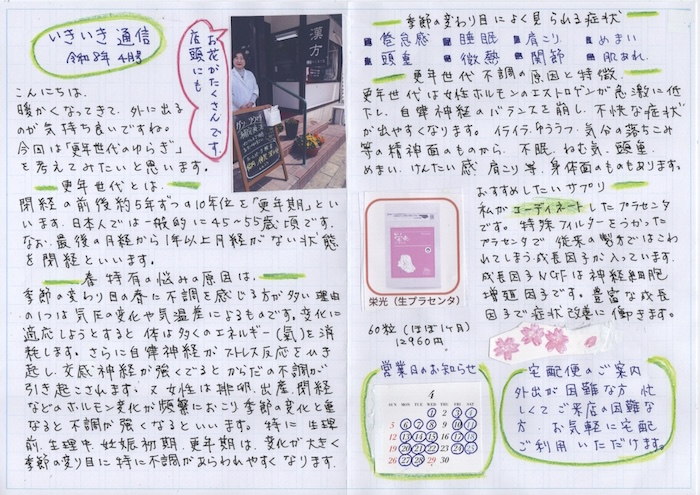 いきいき通信
令和8年 4月号
お花がたくさんです
店頭にも
漢方
こんにちは。
暖かくなってきて、外に出る
のが気持ち良いですね。
今回は「更年世代のゆらぎ」
を考えてみたいと思います。
更年世代とは、
閉経の前後約5年ずつの10年位を「更年期」とい
います。日本人では一般的に45〜55歳頃です。
なお、最後の月経から1年以上月経がない状態
を閉経といいます。
春特有の悩みの原因は、
季節の変わり目の春に不調を感じる方が多い理由
の1つは気圧の変化や気温差によるものです。変化に
適応しようとすると体は多くのエネルギー(氣)を消
耗します。さらに自律神経がストレス反応をひき
起し、交感神経が強くでるとからだの不調が
引き起こされます。又女性は排卵、出産、閉経
などのホルモン変化が頻繁におこり季節の変化と重
なると不調が強くなるといいます。特に生理
前、生理中、妊娠初期、更年期は、変化が大きく
季節の変り目に特に不調があらわれやすくなります。
季節の変わり目によく見られる症状
倦怠感 睡眠 肩こり めまい
頭重 微熱 関節 肌あれ
更年世代不調の原因と特徴
更年世代は女性ホルモンのエストロゲンが急激に低
下し、自律神経のバランスを崩し、不快な症状
が出やすくなります。イライラ、ゆううつ、気分の落ちこみ
等の精神面のものから、不眠、ねむ気、頭重、
めまい、けんたい感、肩こり等、身体面のものもあります。
おすすめしたいサプリ
私がコーディネートしたプラセンタ
です。特殊フィルターをつかった
プラセンタで従来の製法ではこわ
れてしまう成長因子が入っています。
成長因子NGFは神経細胞
増殖因子です。豊富な成長
因子で症状改善に働きます。
栄光(生プラセンタ)
60粒(ほぼ1ヶ月)
12960円
営業日のお知らせ
4
SUN MON TUE WED THU FRI SAT
1 2 3 4
5 6 7 8 9 10 11
12 13 14 15 16 17 18
19 20 21 22 23 24 25
26 27 28 29 30
宅配便のご案内
外出が困難な方、忙
しくてご来店の困難な
方、お気軽に宅配
ご利用いただけます。